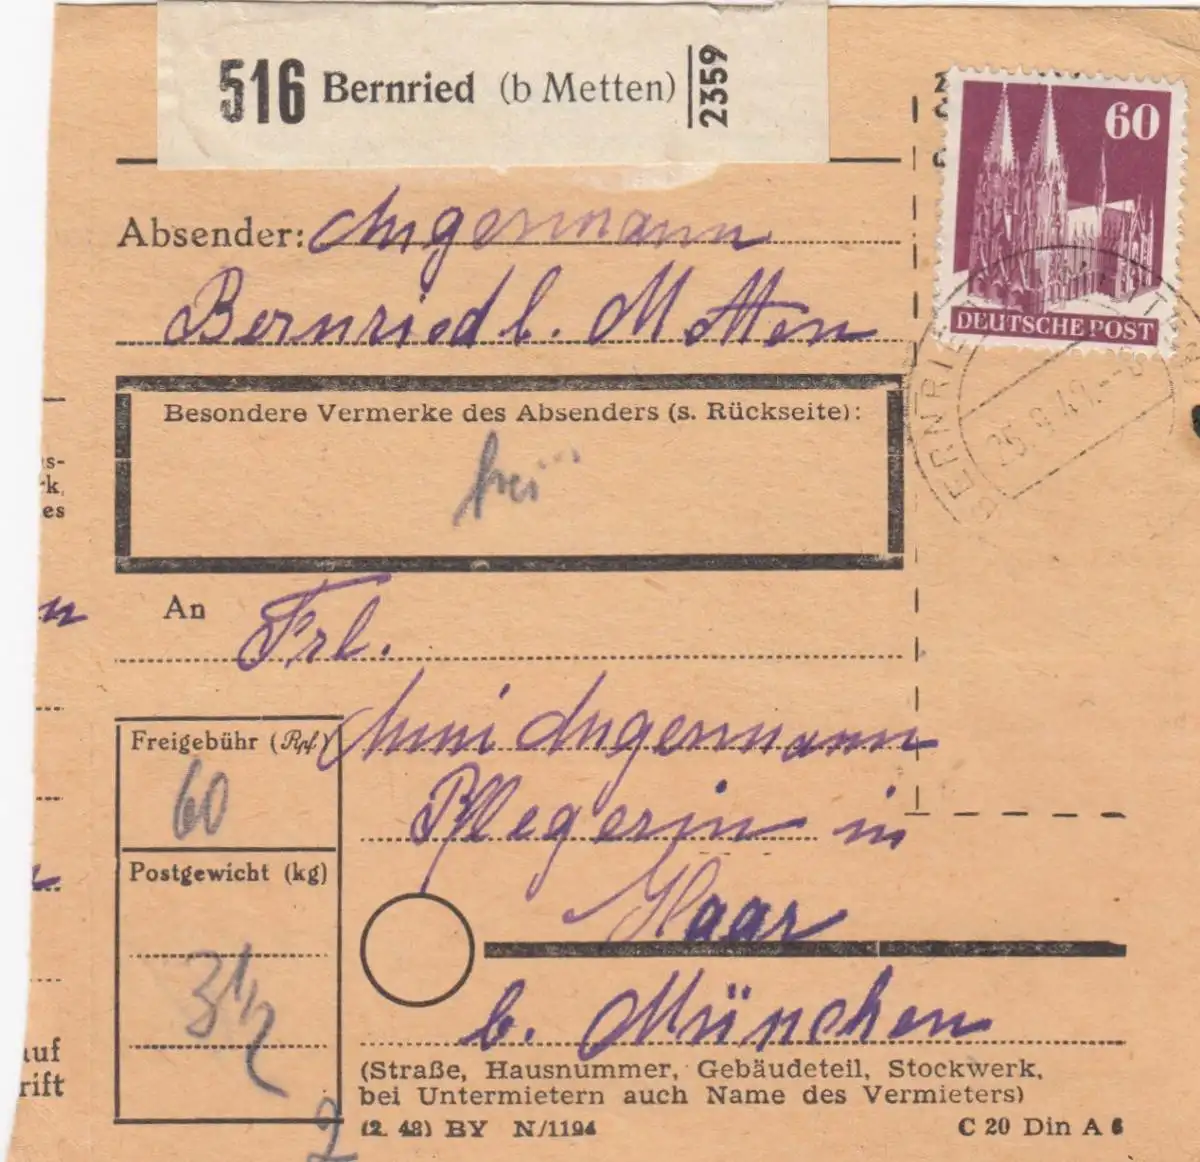 516 Bernried (b Metten) 2359
60
DEUTSCHE POST
Absender: Angermann
Bernried b. Metten
Besondere Vermerke des Absenders (s. Rückseite):
frei
An Frl.
Anni Angermann
Freigebühr (Rpf.)
60
Pflegerin in
Postgewicht (kg)
Haar
3 1/2
b. München
(Straße, Hausnummer, Gebäudeteil, Stockwerk,
bei Untermietern auch Name des Vermieters)
2
(2. 48) BY N/1194 C 20 Din A 6
rk,
es
uf
rift